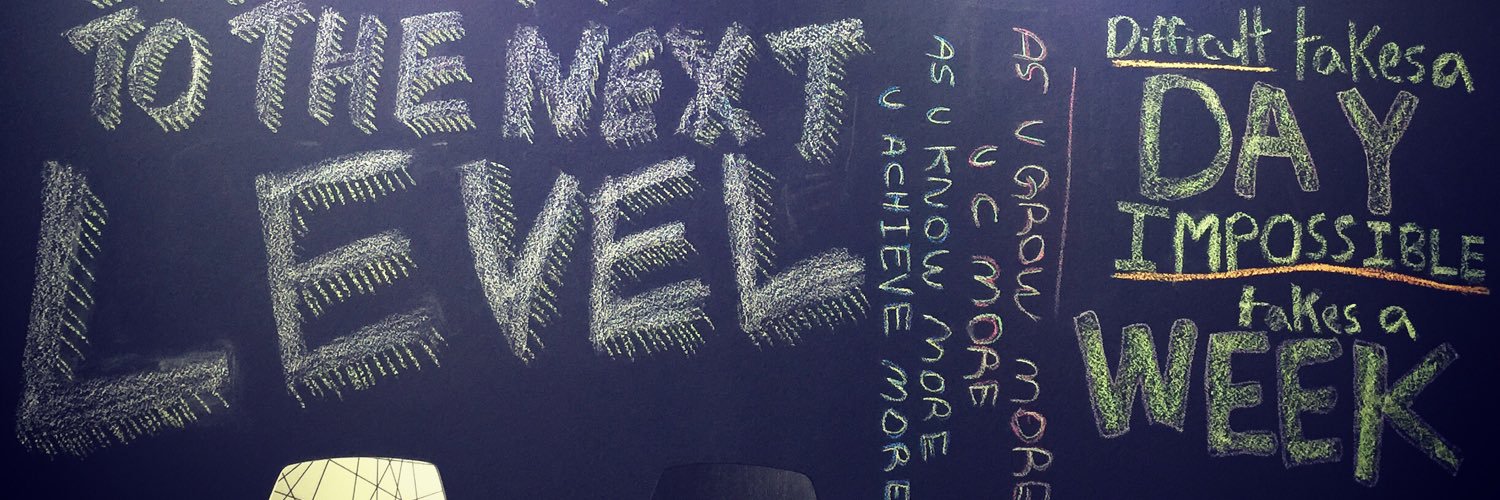 TO THE NEXT
LEVEL
AS U GROW MORE
U C MORE
AS U KNOW MORE
U ACHIEVE MORE
Difficult takes a
DAY
IMPOSSIBLE
takes a
WEEK